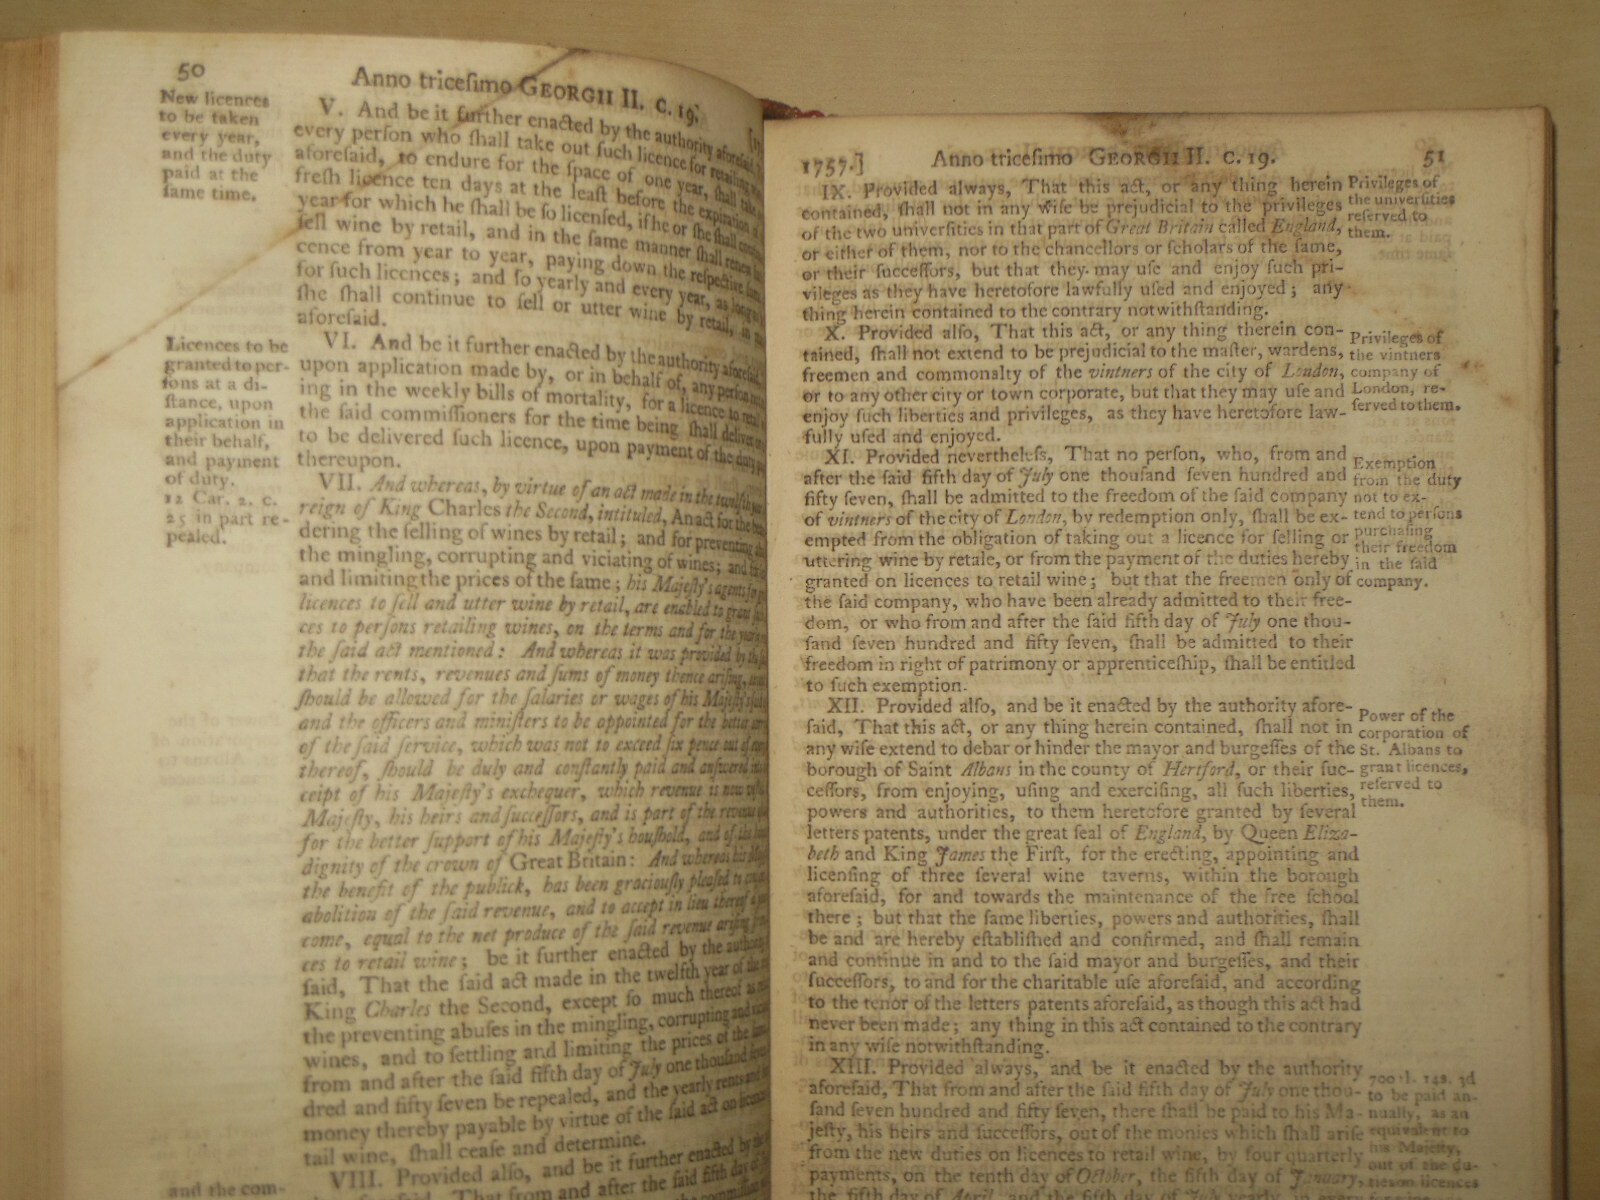 50
Anno triceſimo GEORGII II. C. 19.
New licences
to be taken
every year,
and the duty
paid at the
ſame time.
V. And be it further enacted by the authority aforeſaid,
every perſon who ſhall take out ſuch licence for retailing
aforeſaid, to endure for the ſpace of one year, ſhall take
freſh licence ten days at the leaſt before the expiration of
year for which he ſhall be ſo licenſed, if he or ſhe ſhall
ſell wine by retail, and in the ſame manner ſhall renew
cence from year to year, paying down the reſpective
for ſuch licences; and ſo yearly and every year, as long
ſhe ſhall continue to ſell or utter wine by retail,
aforeſaid.
Licences to be
granted to per-
ſons at a di-
ſtance, upon
application in
their behalf,
and payment
of duty.
12 Car. 2. c.
25 in part re-
pealed.
VI. And be it further enacted by the authority aforeſaid,
upon application made by, or in behalf of, any perſon
ing in the weekly bills of mortality, for a licence to retail
the ſaid commiſſioners for the time being ſhall deliver
to be delivered ſuch licence, upon payment of the duty
thereupon.
VII. And whereas, by virtue of an act made in the twelfth year
reign of King Charles the Second, intituled, An act for the
dering the ſelling of wines by retail; and for preventing
the mingling, corrupting and viciating of wines; and
and limiting the prices of the ſame; his Majeſty's agents for
licences to ſell and utter wine by retail, are enabled to grant
ces to perſons retailing wines, on the terms and for the
the ſaid act mentioned: And whereas it was provided by the
that the rents, revenues and ſums of money thence ariſing,
ſhould be allowed for the ſalaries or wages of his Majeſty's
and the officers and miniſters to be appointed for the better
of the ſaid ſervice, which was not to exceed ſix pence out of
thereof, ſhould be duly and conſtantly paid and anſwered
ceipt of his Majeſty's exchequer, which revenue is now
Majeſty, his heirs and ſucceſſors, and is part of the revenue
for the better ſupport of his Majeſty's houſhold, and of the
dignity of the crown of Great Britain: And whereas his
the benefit of the publick, has been graciouſly pleaſed to
abolition of the ſaid revenue, and to accept in lieu thereof
come, equal to the net produce of the ſaid revenue ariſing
ces to retail wine; be it further enacted by the
ſaid, That the ſaid act made in the twelfth year of the
King Charles the Second, except ſo much thereof as
the preventing abuſes in the mingling, corrupting and
wines, and to ſettling and limiting the prices of the
from and after the ſaid fifth day of July one thouſand
dred and fifty ſeven be repealed, and the yearly rents and
money thereby payable by virtue of the ſaid act on licences
tail wine, ſhall ceaſe and determine.
VIII. Provided alſo, and be it further enacted by the
and the com-
That from and after the ſaid fifth day of
1757.]
Anno triceſimo GEORGII II. C. 19.
51
IX. Provided always, That this act, or any thing herein
contained, ſhall not in any wiſe be prejudicial to the privileges
of the two univerſities in that part of Great Britain called England,
or either of them, nor to the chancellors or ſcholars of the ſame,
or their ſucceſſors, but that they may uſe and enjoy ſuch pri-
vileges as they have heretofore lawfully uſed and enjoyed; any
thing herein contained to the contrary notwithſtanding.
Privileges of
the univerſities
reſerved to
them.
X. Provided alſo, That this act, or any thing therein con-
tained, ſhall not extend to be prejudicial to the maſter, wardens,
freemen and commonalty of the vintners of the city of London,
or to any other city or town corporate, but that they may uſe and
enjoy ſuch liberties and privileges, as they have heretofore law-
fully uſed and enjoyed.
Privileges of
the vintners
company of
London, re-
ſerved to them.
XI. Provided nevertheleſs, That no perſon, who, from and
after the ſaid fifth day of July one thouſand ſeven hundred and
fifty ſeven, ſhall be admitted to the freedom of the ſaid company
of vintners of the city of London, by redemption only, ſhall be ex-
empted from the obligation of taking out a licence for ſelling or
uttering wine by retale, or from the payment of the duties hereby
granted on licences to retail wine; but that the freemen only of
the ſaid company, who have been already admitted to their free-
dom, or who from and after the ſaid fifth day of July one thou-
ſand ſeven hundred and fifty ſeven, ſhall be admitted to their
freedom in right of patrimony or apprenticeſhip, ſhall be entitled
to ſuch exemption.
Exemption
from the duty
not to ex-
tend to perſons
purchaſing
their freedom
in the ſaid
company.
XII. Provided alſo, and be it enacted by the authority afore-
ſaid, That this act, or any thing herein contained, ſhall not in
any wiſe extend to debar or hinder the mayor and burgeſſes of the
borough of Saint Albans in the county of Hertford, or their ſuc-
ceſſors, from enjoying, uſing and exerciſing, all ſuch liberties,
powers and authorities, to them heretofore granted by ſeveral
letters patents, under the great ſeal of England, by Queen Eliza-
beth and King James the Firſt, for the erecting, appointing and
licenſing of three ſeveral wine taverns, within the borough
aforeſaid, for and towards the maintenance of the free ſchool
there; but that the ſame liberties, powers and authorities, ſhall
be and are hereby eſtabliſhed and confirmed, and ſhall remain
and continue in and to the ſaid mayor and burgeſſes, and their
ſucceſſors, to and for the charitable uſe aforeſaid, and according
to the tenor of the letters patents aforeſaid, as though this act had
never been made; any thing in this act contained to the contrary
in any wiſe notwithſtanding.
Power of the
corporation of
St. Albans to
grant licences,
reſerved to
them.
XIII. Provided always, and be it enacted by the authority
aforeſaid, That from and after the ſaid fifth day of July one thou-
ſand ſeven hundred and fifty ſeven, there ſhall be paid to his Ma-
jeſty, his heirs and ſucceſſors, out of the monies which ſhall ariſe
from the new duties on licences to retail wine, by four quarterly
payments, on the tenth day of October, the fifth day of January,
the fifth day of April, and the fifth day of July yearly
700 l. 14s. 3d
to be paid an-
nually, as an
equivalent to
his Majeſty,
out of the du-
ties on licences